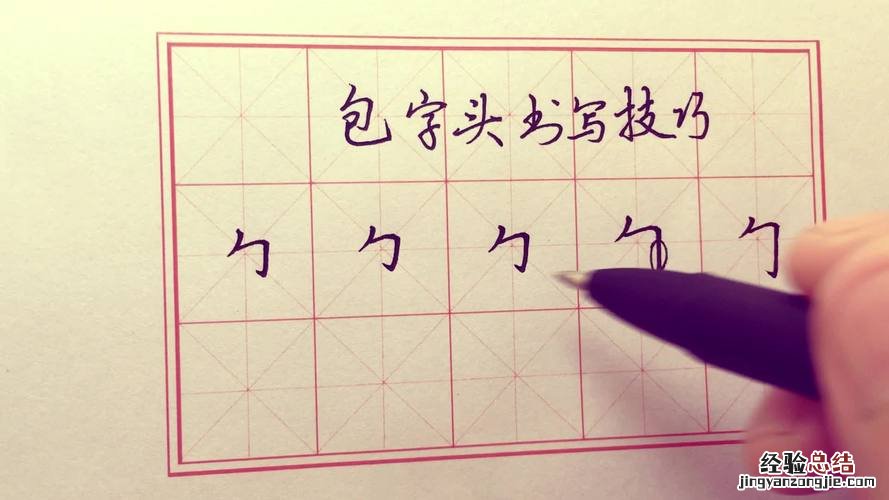 包字头书写技巧
勹 勹 勹 勹 勹
经验总结
jingyanzongjie.com